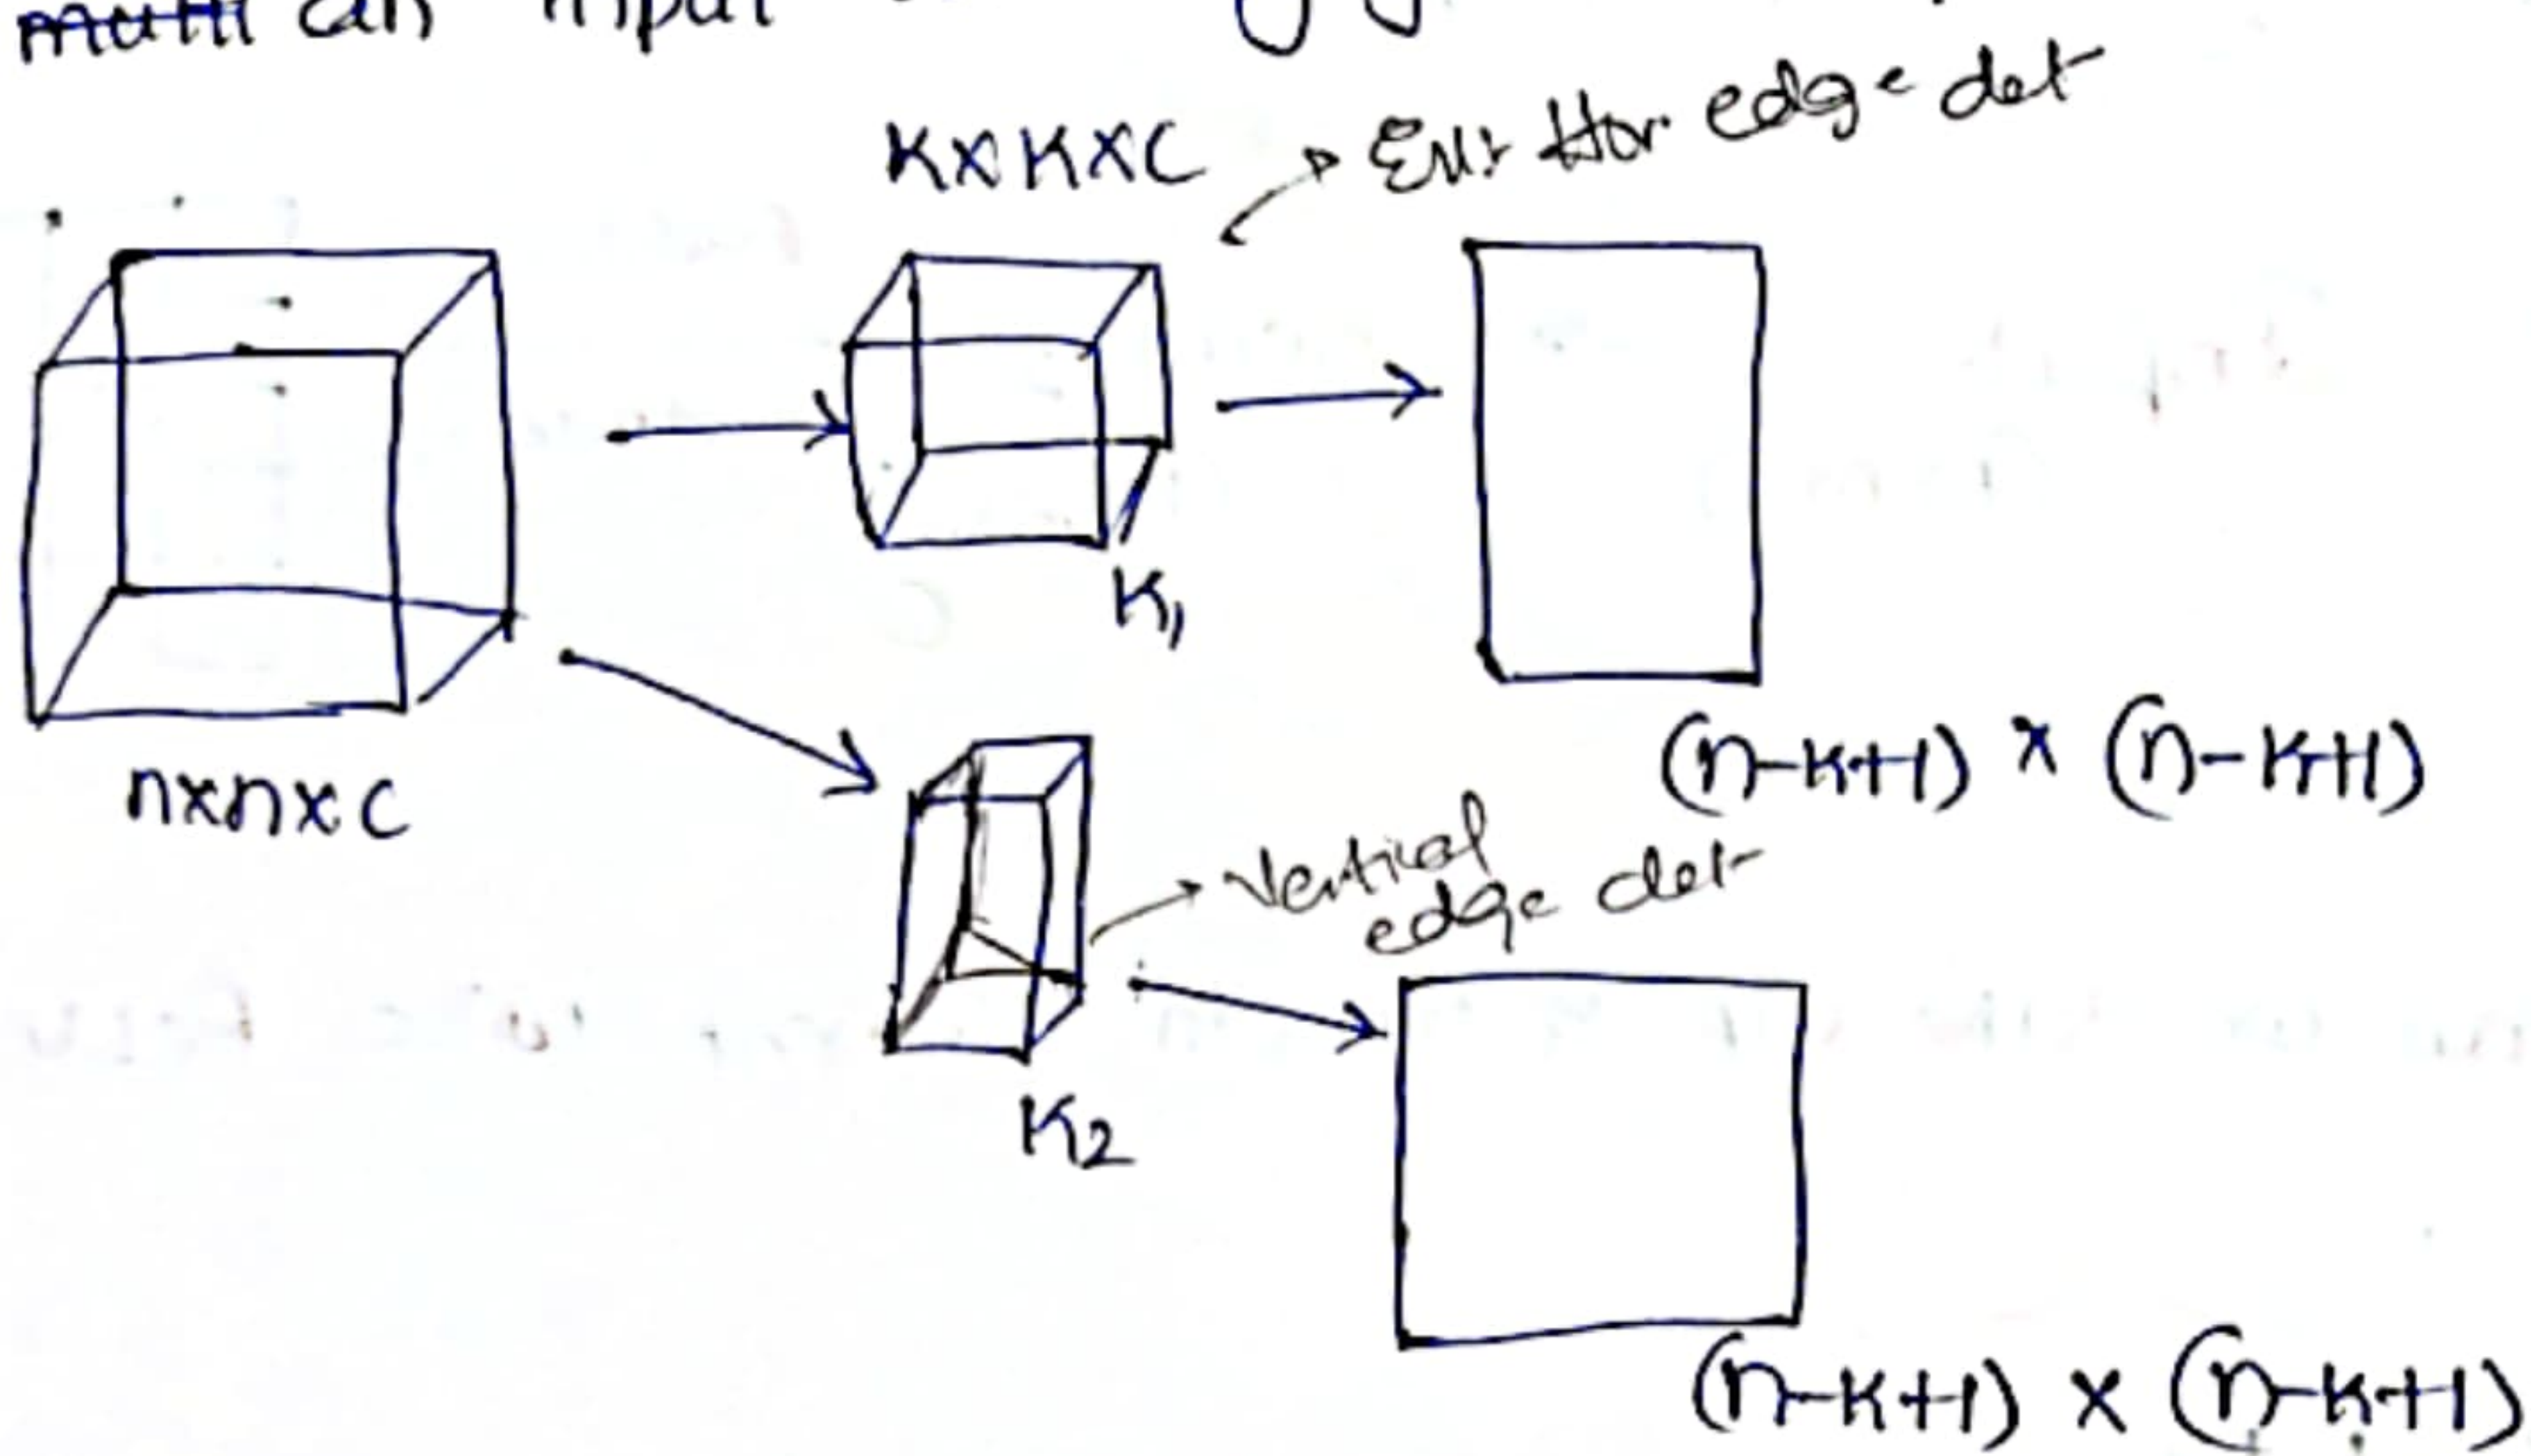 an input
K×K×C
Hor. edge det
K₁
n×n×c
(n-k+1) × (n-k+1)
Vertical
edge det
K₂
(n-k+1) × (n-k+1)